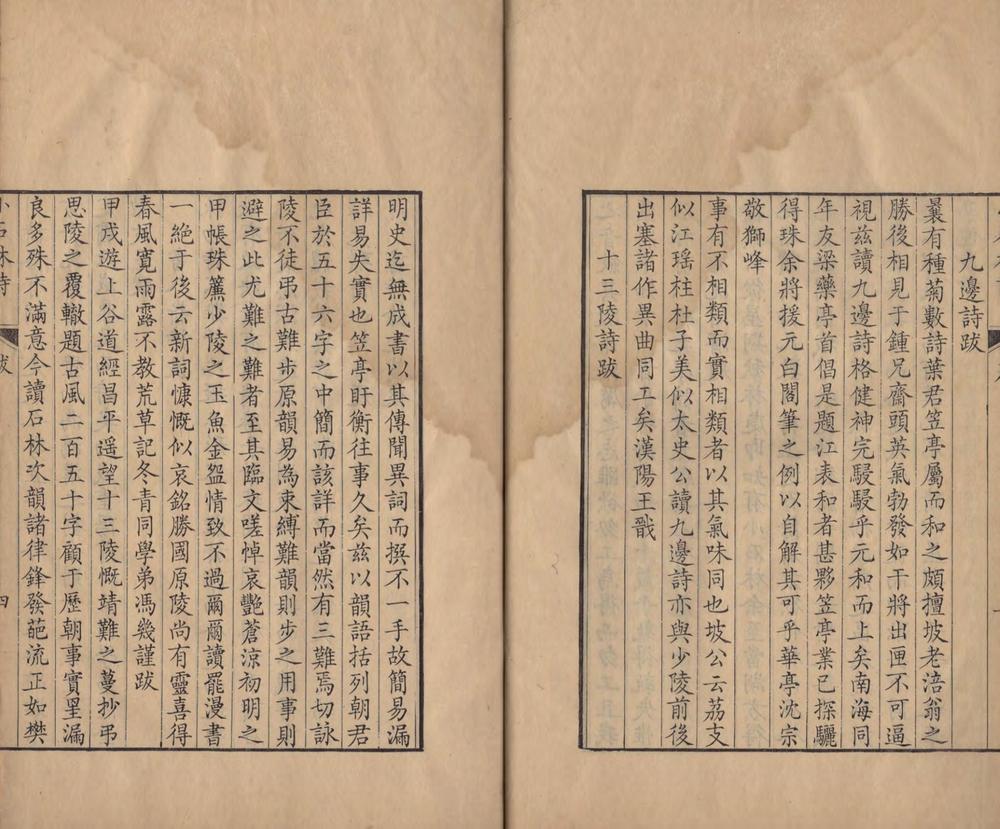 九邊詩跋
曩有種菊數詩葉君笠亭屬而和之頗擅坡老涪翁之
勝後相見于鍾兄齋頭英氣勃發如干將出匣不可逼
視兹讀九邊詩格健神完駸駸乎元和而上矣南海同
年友梁藥亭首倡是題江表和者甚夥笠亭業已探驪
得珠余將援元白閣筆之例以自解其可乎華亭沈宗
敬獅峰
事有不相類而實相類者以其氣味同也坡公云荔支
似江瑶柱杜子美似太史公讀九邊詩亦與少陵前後
出塞諸作異曲同工矣漢陽王戩
十三陵詩跋
明史迄無成書以其傳聞異詞而撰不一手故簡易漏
詳易失實也笠亭盱衡往事久矣兹以韻語括列朝君
臣於五十六字之中簡而該詳而當然有三難焉切詠
陵不徒弔古難步原韻易為束縛難韻則步之用事則
避之此尤難之難者至其臨文嗟悼哀艷蒼涼初明之
甲帳珠簾少陵之玉魚金盌情致不過爾爾讀罷漫書
一絶于後云新詞慷慨似哀銘勝國原陵尚有靈喜得
春風寬雨露不教荒草記冬青同學弟馮幾謹跋
甲戌遊上谷道經昌平遥望十三陵慨靖難之蔓抄弔
思陵之覆轍題古風二百五十字顧于歷朝事實里漏
良多殊不滿意今讀石林次韻諸律鋒發葩流正如樊
小石林詩
跋
四